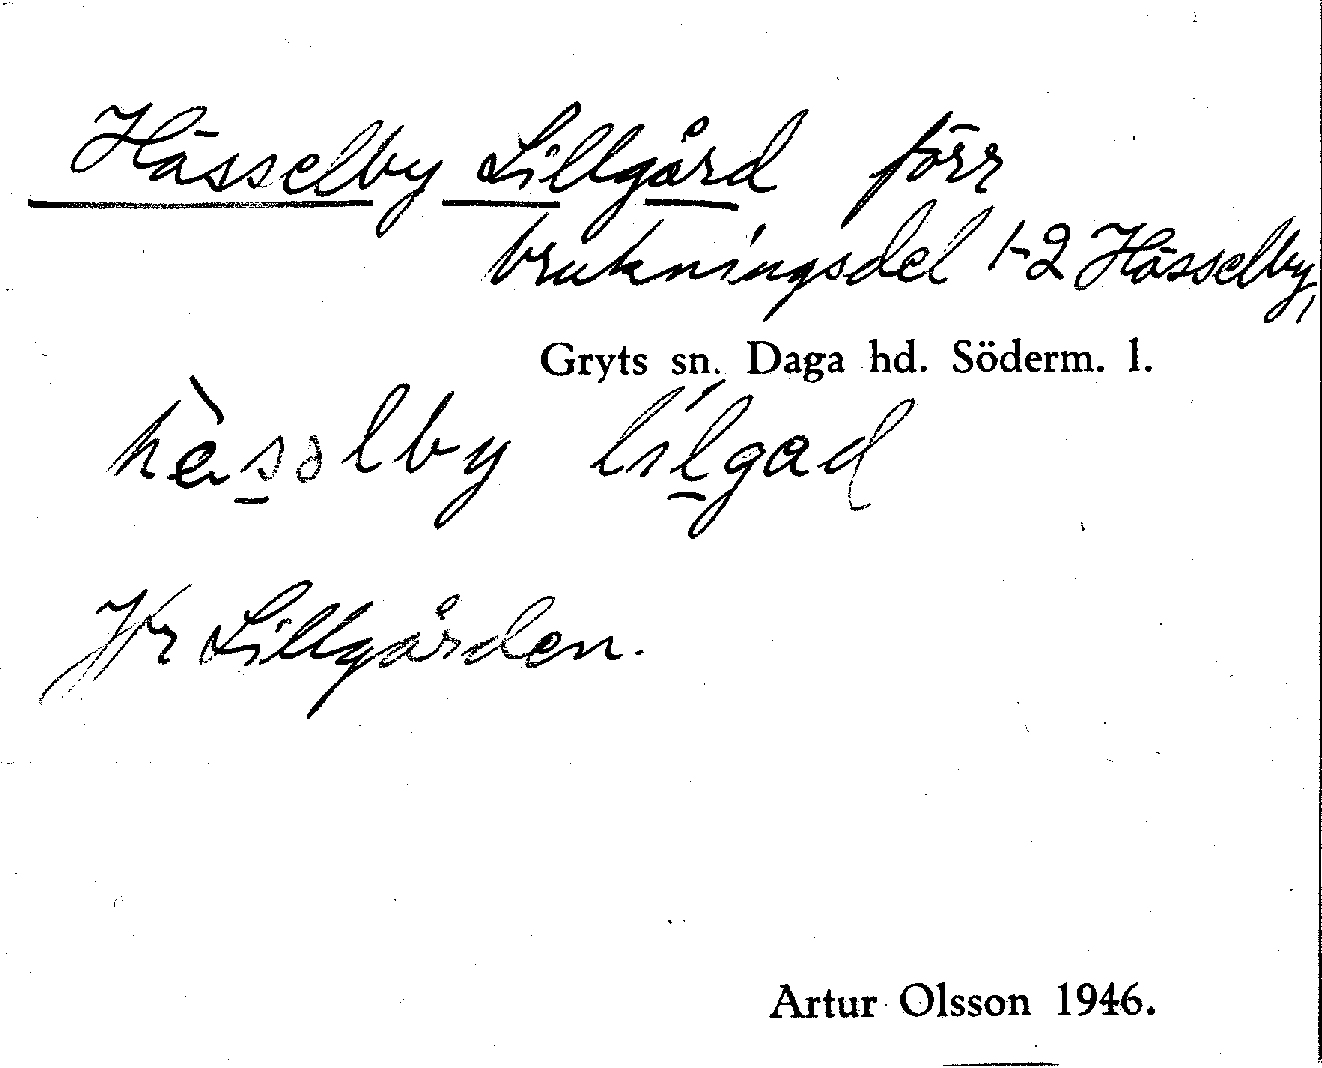 Hässelby Lillgård förr
brukningsdel 1-2 Hässelby,
Gryts sn. Daga hd. Söderm. l.
hàsəlby lílgad
Jfr Lillgården.
Artur Olsson 1946.